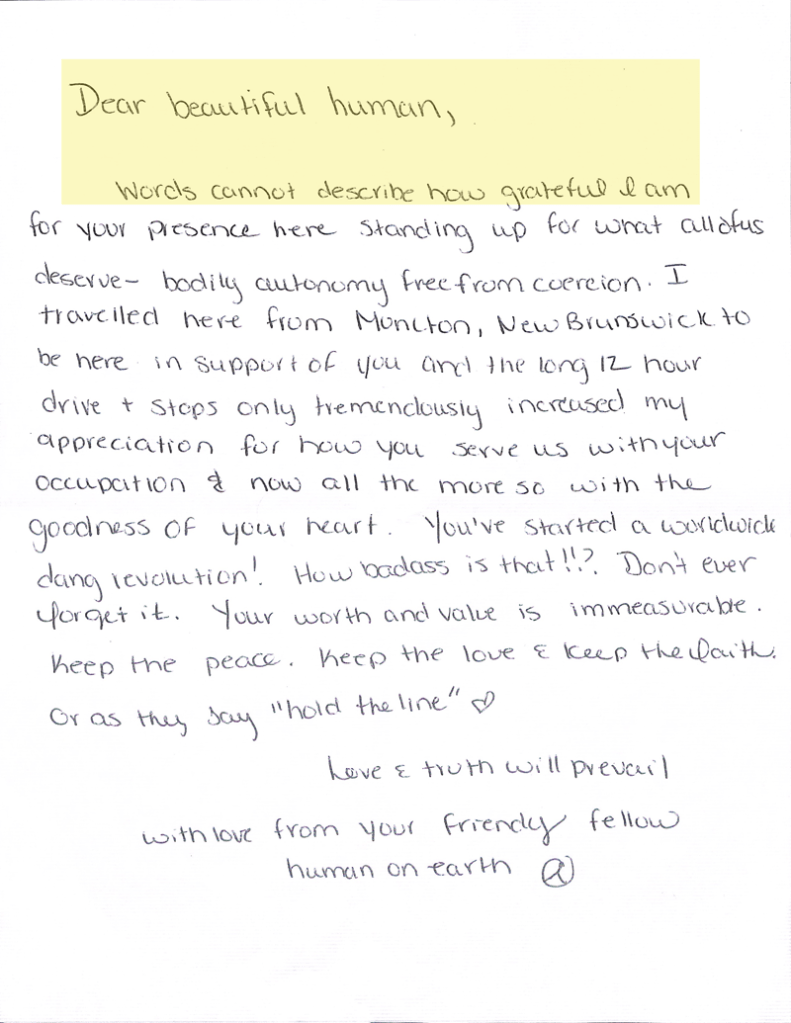 Dear beautiful human,
Words cannot describe how grateful I am
for your presence here standing up for what all of us
deserve- bodily autonomy free from coercion. I
travelled here from Moncton, New Brunswick to
be here in support of you and the long 12 hour
drive + stops only tremendously increased my
appreciation for how you serve us with your
occupation & now all the more so with the
goodness of your heart. You've started a worldwide
dang revolution! How badass is that!!? Don't ever
forget it. Your worth and value is immeasurable.
Keep the peace. Keep the love & keep the faith.
Or as they say "hold the line" ♡
Love & truth will prevail
with love from your friendly fellow
human on earth ☮